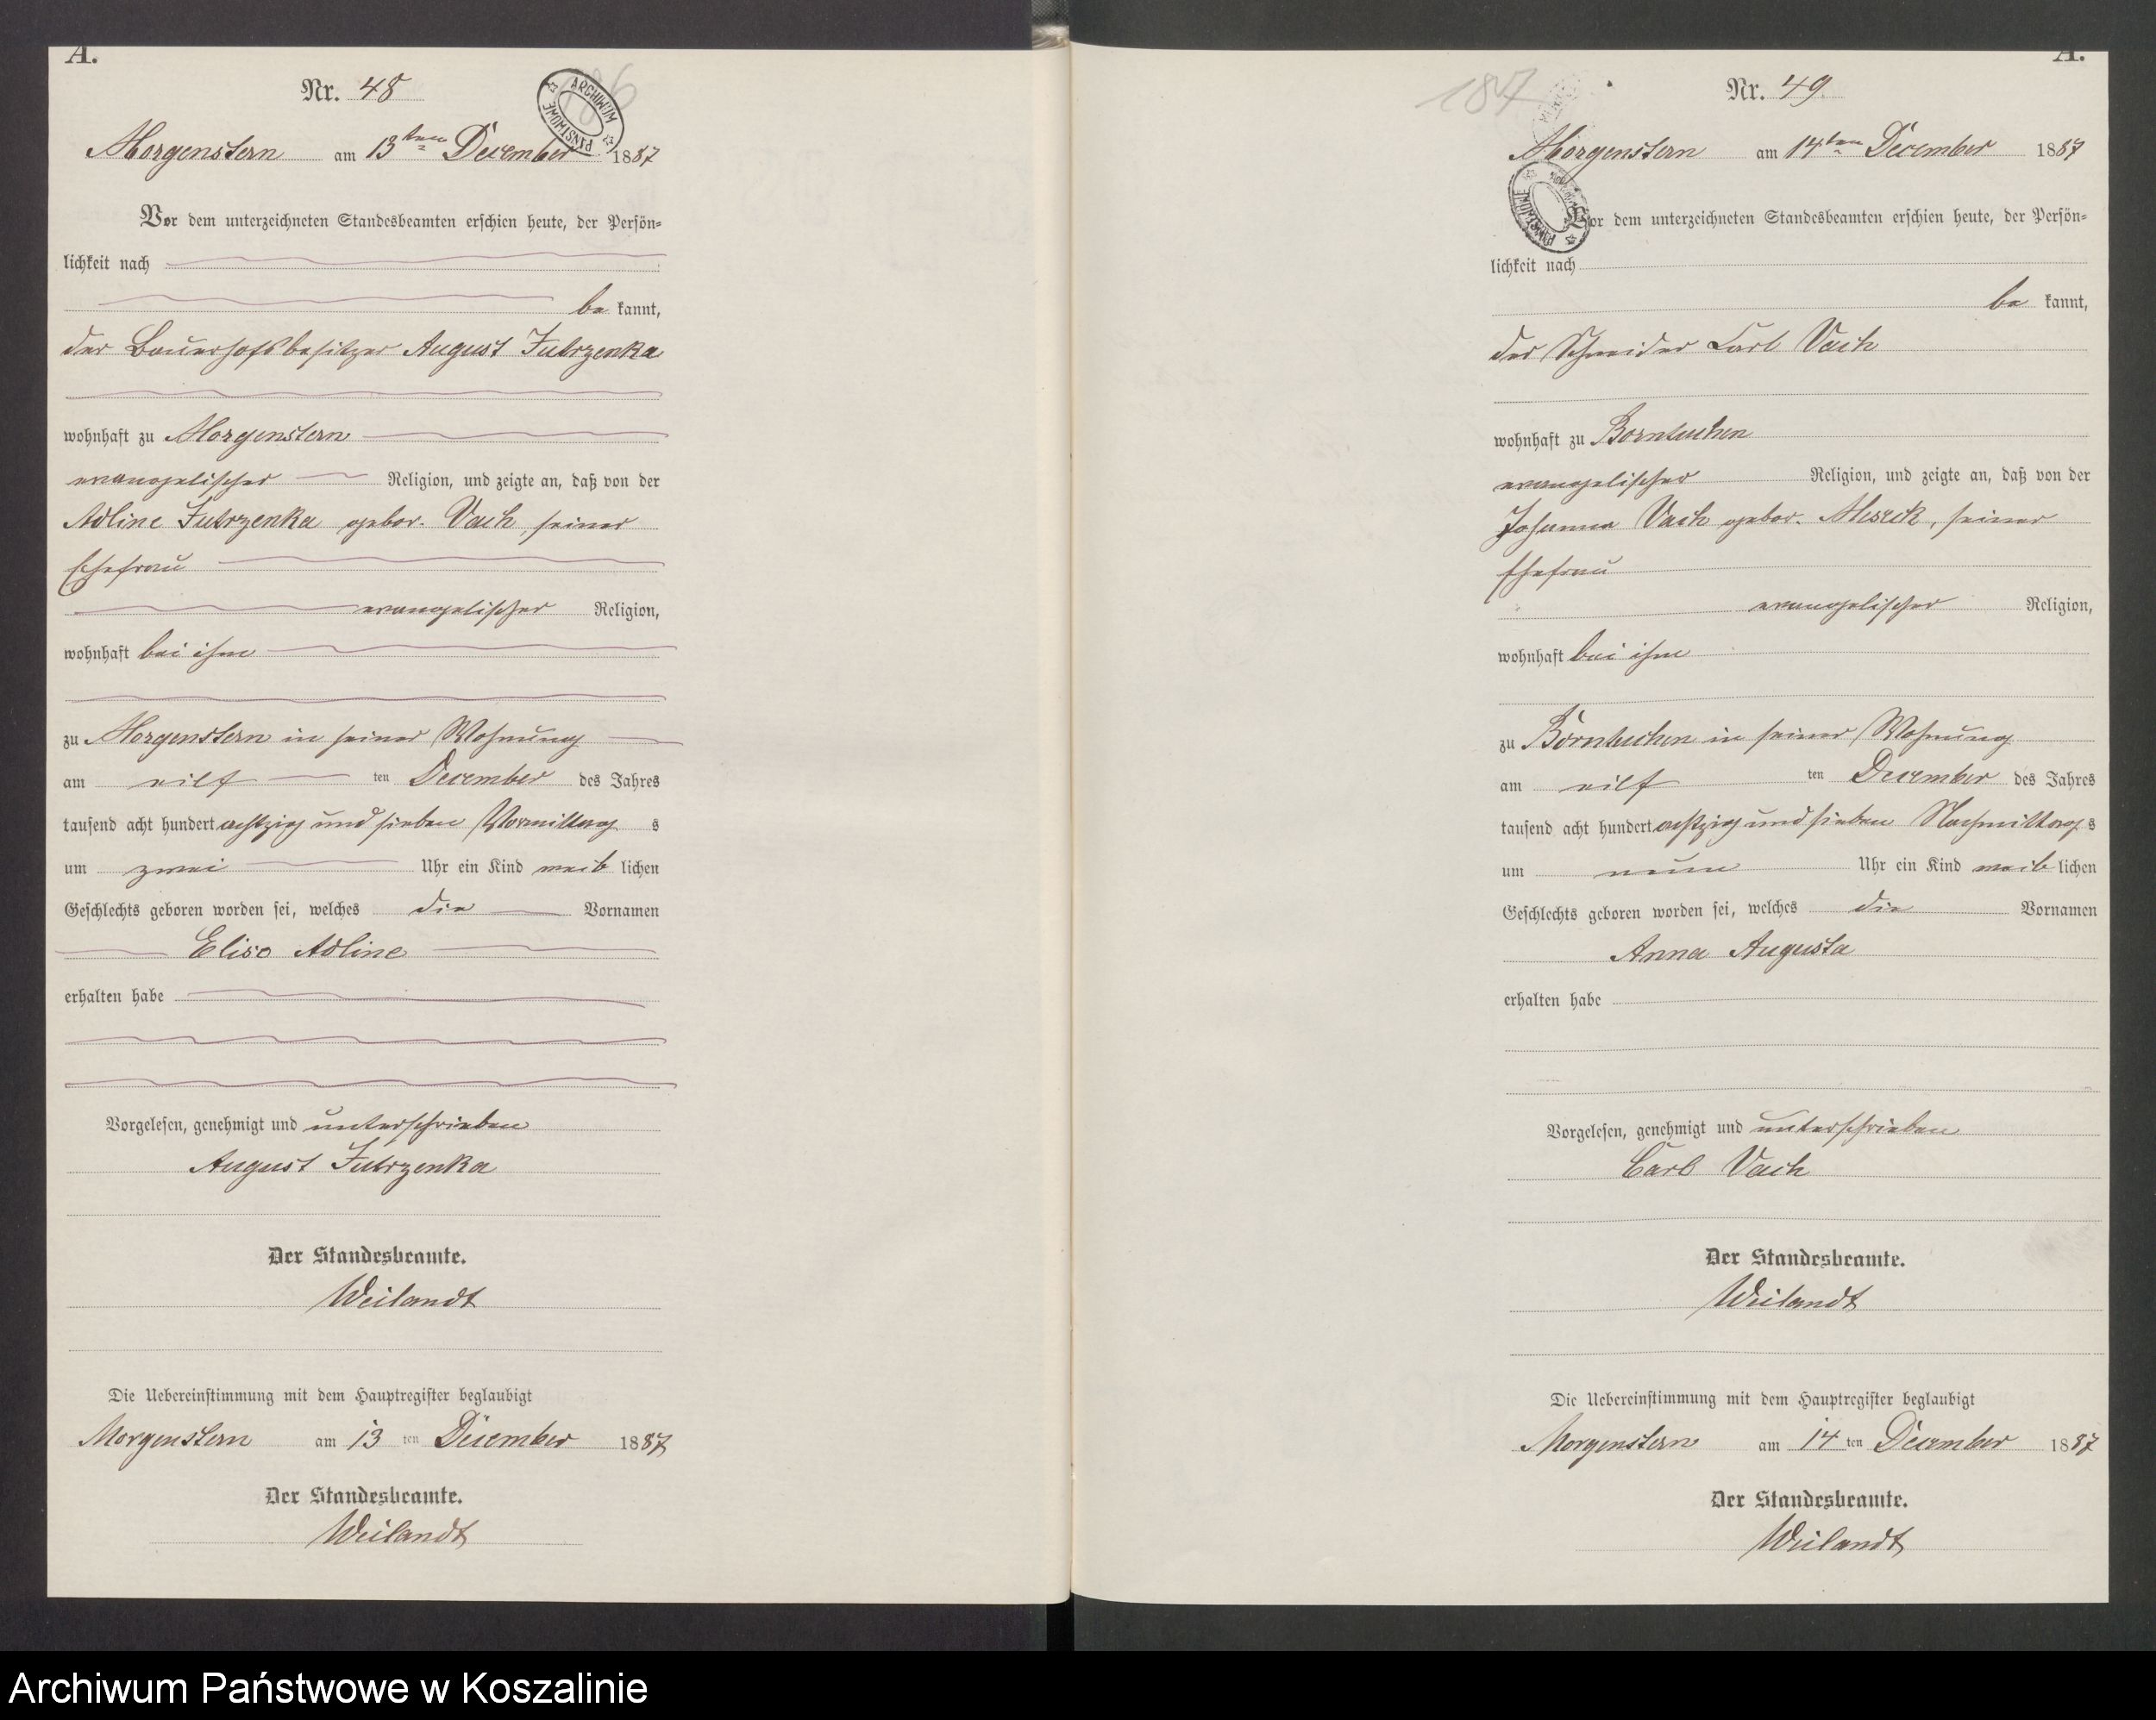 A.
Nr. 48
186
ARCHIWUM PAŃSTWOWE
Morgenstern am 13ten December 1887
Vor dem unterzeichneten Standesbeamten erschien heute, der Persön=
lichkeit nach
be kannt,
der Bauerhofsbesitzer August Jutrzenka
wohnhaft zu Morgenstern
evangelischer Religion, und zeigte an, daß von der
Adline Jutrzenka gebor. Vach, seiner
Ehefrau
evangelischer Religion,
wohnhaft bei ihm
zu Morgenstern in seiner Wohnung
am eilf ten December des Jahres
tausend acht hundert achtzig und sieben Vormittag s
um zwei Uhr ein Kind weib lichen
Geschlechts geboren worden sei, welches die Vornamen
Elise Adline
erhalten habe
Vorgelesen, genehmigt und unterschrieben
August Jutrzenka
Der Standesbeamte.
Weilandt
Die Uebereinstimmung mit dem Hauptregister beglaubigt
Morgenstern am 13 ten December 1887
Der Standesbeamte.
Weilandt
A.
187
Nr. 49.
Morgenstern am 14ten December 1887
Vor dem unterzeichneten Standesbeamten erschien heute, der Persön=
lichkeit nach
be kannt,
der Schneider Carl Vach
wohnhaft zu Borntuchen
evangelischer Religion, und zeigte an, daß von der
Johanna Vach gebor. , seiner
Ehefrau
evangelischer Religion,
wohnhaft bei ihm
zu Borntuchen in seiner Wohnung
am eilf ten December des Jahres
tausend acht hundert achtzig und sieben Nachmittag s
um neun Uhr ein Kind weib lichen
Geschlechts geboren worden sei, welches die Vornamen
Anna Augusta
erhalten habe
Vorgelesen, genehmigt und unterschrieben
Carl Vach
Der Standesbeamte.
Weilandt
Die Uebereinstimmung mit dem Hauptregister beglaubigt
Morgenstern am 14 ten December 1887
Der Standesbeamte.
Weilandt
Archiwum Państwowe w Koszalinie